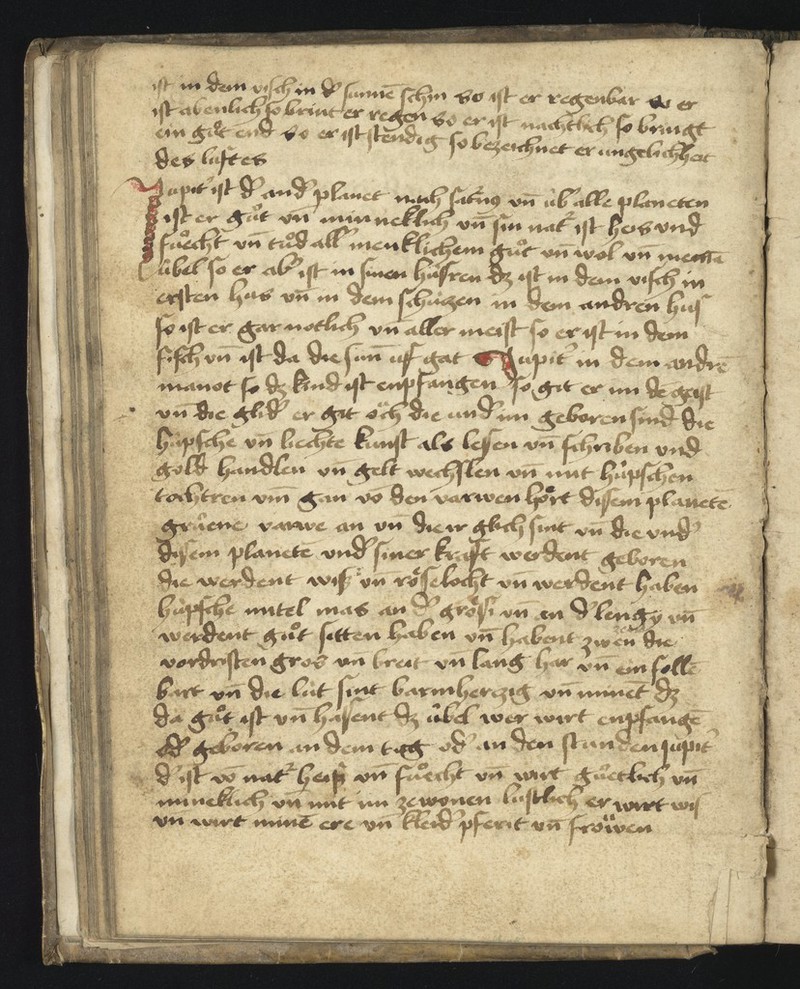 ist in dem visch in dˀ sunnē schin so ist er regenbar so er
ist abenlich so bringt er regen so er ist nachtlich so bringt
ein gůt end so er ist stendig so bezeichnet er ungelichheit
des luftes
Jupitˀ ist dˀ andˀ planet nach satˀnꝰ vn̄ úbˀ alle planeten
ist er gůt vn̄ minneklich vn̄ sin natˀ ist heis vnd
fůecht vn̄ tůd allˀ menklichem gůt vn̄ wol vn̄
úbel so er abˀ ist in sinen húsren dz ist in dem visch im
ersten hus vn̄ in dem schúzen in dem andren hus
so ist er gar notlich vn̄ aller meist so er ist in dem
fisch vn̄ ist da die sun̄ uf gat Jupitˀ in dem andrē
manot so dz kind ist enpfangen so git er im dē geist
vn̄ die glidˀ er git och die undˀ im geboren sind die
húpsche vn̄ liechte kunst als lessen vn̄ schriben vnd
gold handlen vn̄ gelt wechslen vn̄ mit húpschen
tochtren vm̄ gan vō den varwen hört dissem planetē
grůene varwe an vn̄ die ir glich sint vn̄ die vndˀ
dissem planetē vndˀ siner kraft werdent geboren
die werdent wiß vn̄ röselocht vn̄ werdent haben
húpsche mitel mas an dˀ grössi vn̄ an dˀ lengy vn̄
werdent gůt sitten haben vn̄ habent zwen die
vordristen gros vn̄ breit vn̄ lang har vn̄ ein follē
bart vn̄ die lút sint barmherczig vn̄ minēt dz
da gůt ist vn̄ hassent dz úbel wer wirt enpfangē
odˀ geboren an dem tag odˀ an den stunden jupitˀ
dˀ ist vō natˀ heiß vn̄ fůecht vn̄ wirt gůetlich vn̄
mineklich vn̄ mit im ze wonen lustlich er wirt wis
vn̄ wirt minē ere vn̄ kleidˀ pferit vn̄ fröwen